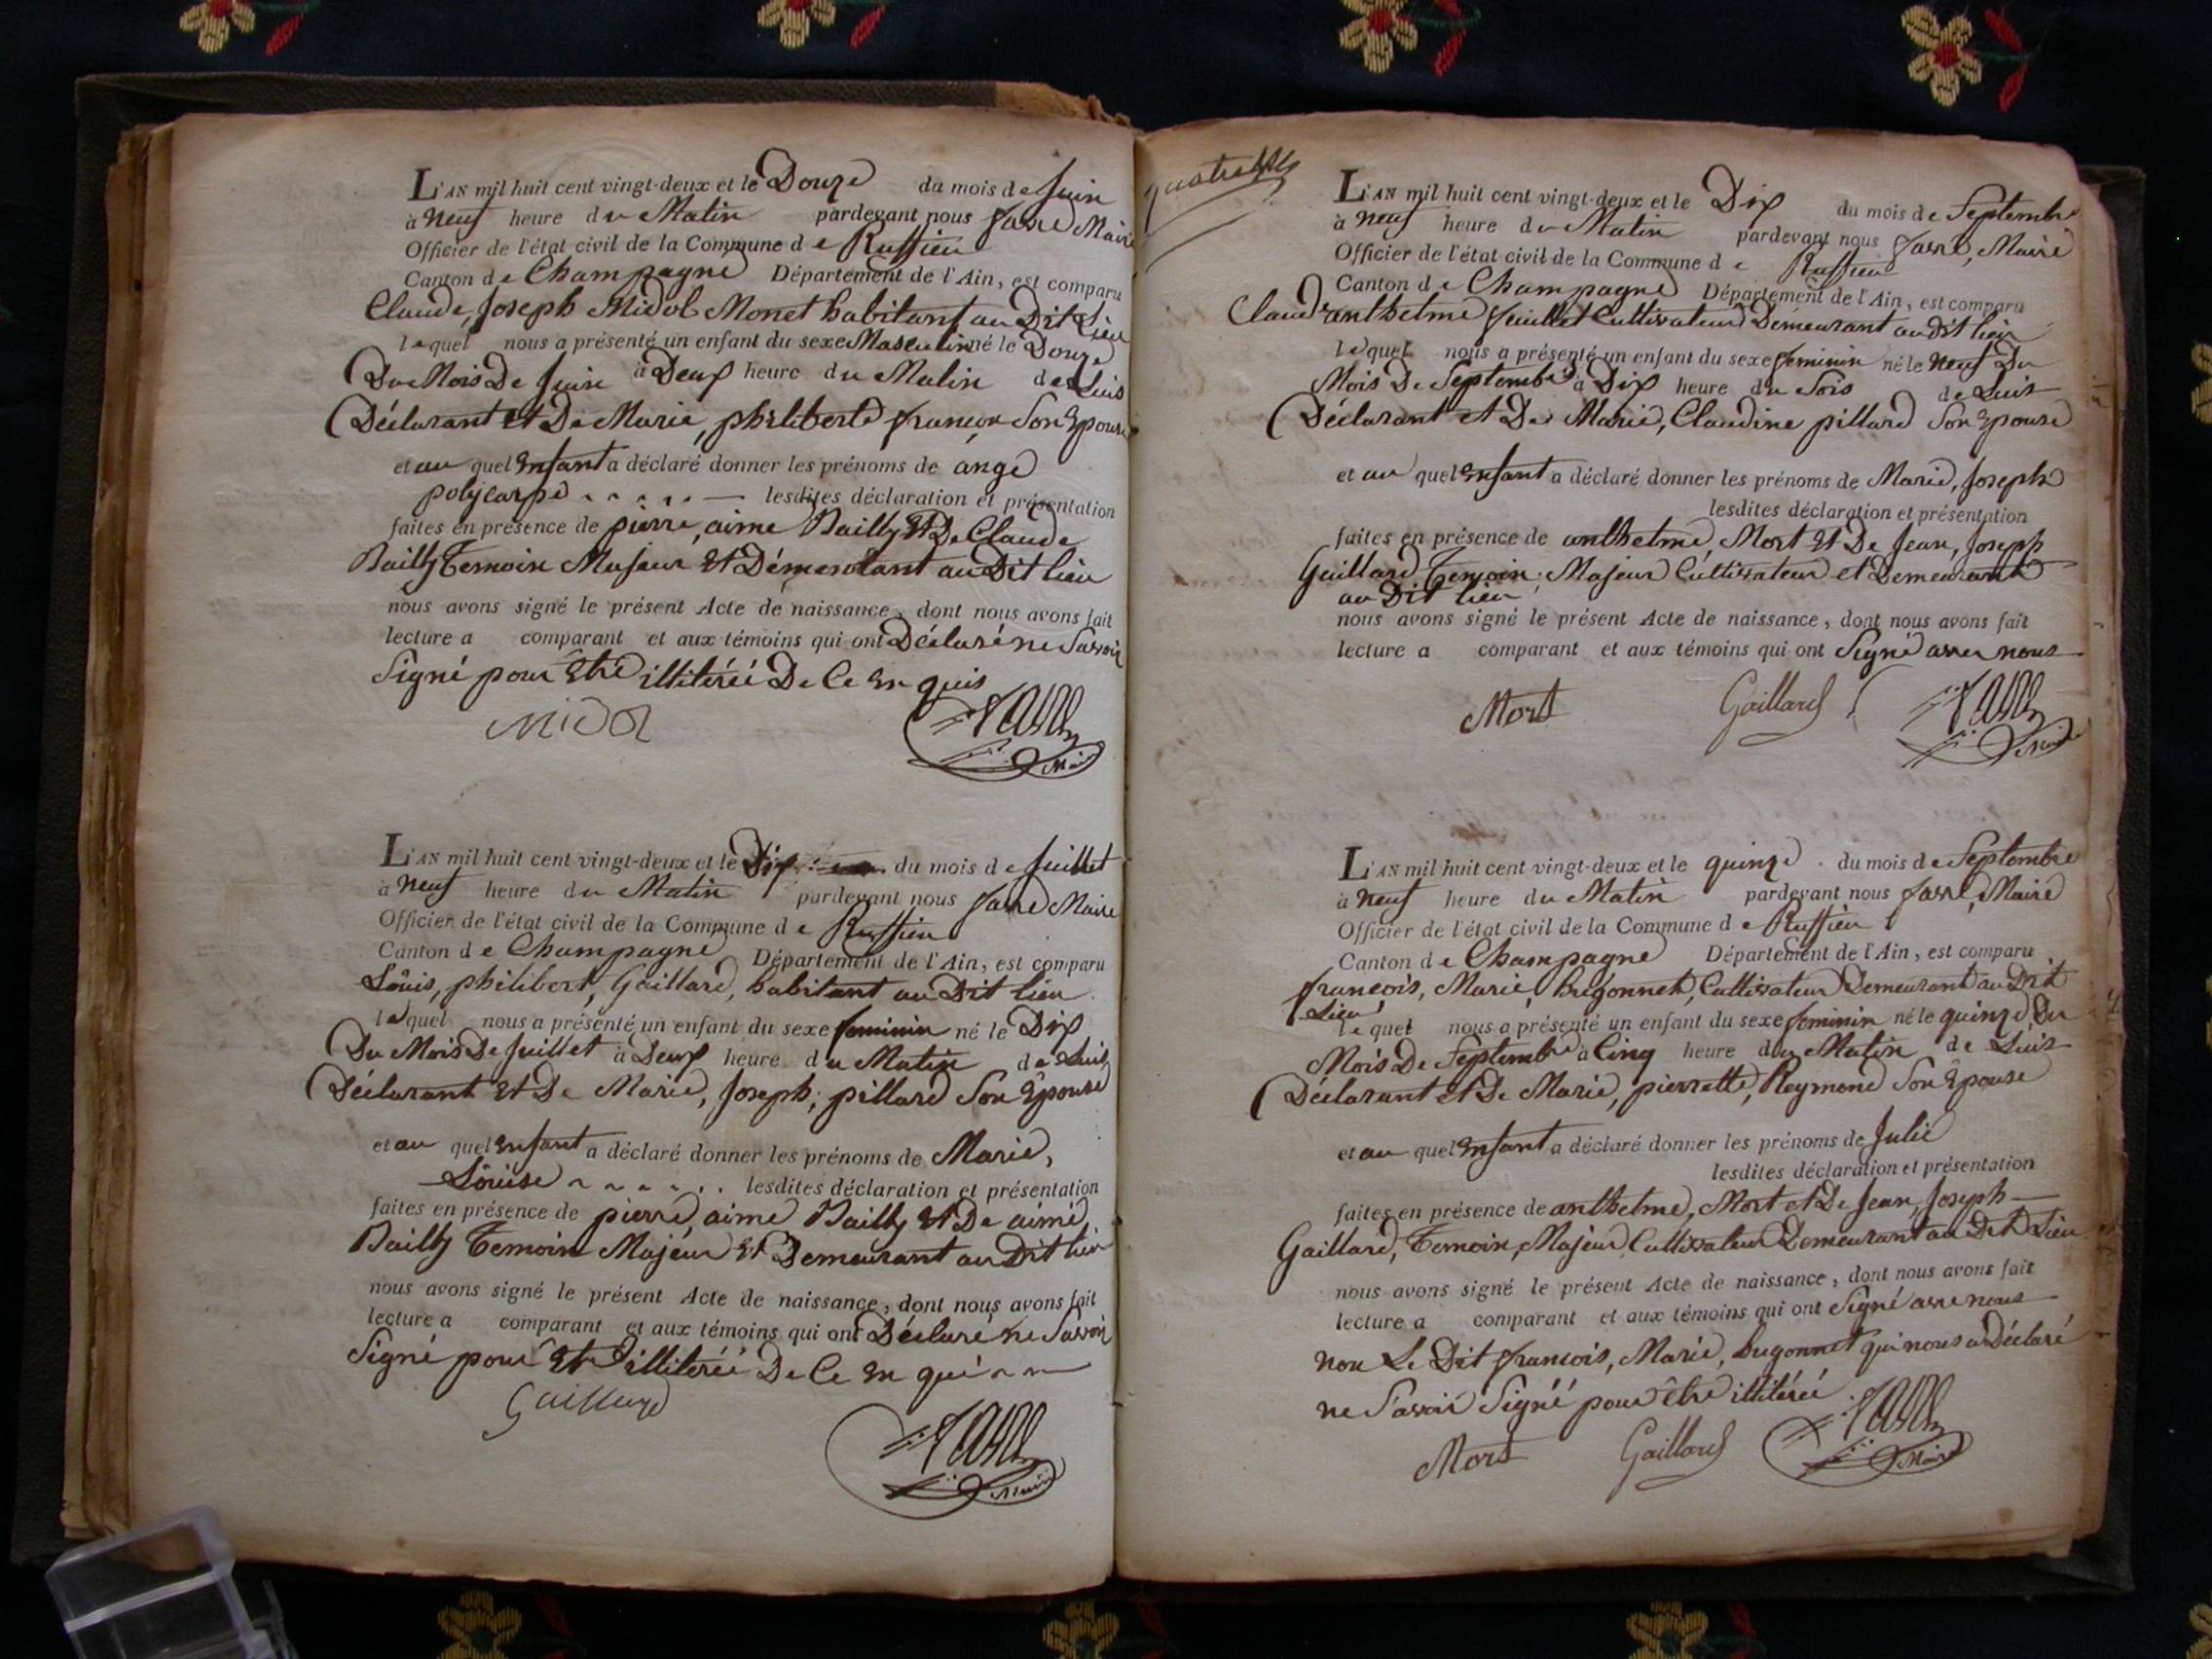 L'AN mil huit cent vingt-deux et le Douze du mois de Juin
à neuf heure du Matin pardevant nous favre Maire
Officier de l'état civil de la Commune de Ruffieu
Canton de Champagne Département de l'Ain, est comparu
Claude, Joseph Midol Monet habitant au Dit Lieu
lequel nous a présenté un enfant du sexe Masculin né le Douze
Du Mois De Juin à Deux heure du Matin de Luis
Déclarant et De Marie, philiberte françon Son Epouse
et au quel Enfant a déclaré donner les prénoms de ange
polycarpe lesdites déclaration et présentation
faites en présence de pierre, aime Bailly Et De Claude
Bailly Temoin Majeur Et Démeurant au Dit lieu
nous avons signé le présent Acte de naissance, dont nous avons fait
lecture a comparant et aux témoins qui ont Déclaré ne Savoir
Signé pour Etre illiterée De Ce En quis
Midol
favre
Maire
L'AN mil huit cent vingt-deux et le Dix du mois de Juillet
à neuf heure du Matin pardevant nous favre Maire
Officier de l'état civil de la Commune de Ruffieu
Canton de Champagne Département de l'Ain, est comparu
Louis, philibert, Gaillard, habitant au Dit lieu
lequel nous a présenté un enfant du sexe feminin né le Dix
Du Mois De Juillet à Deux heure du Matin de Luis
Déclarant Et De Marie, Joseph, pillard Son Epouse
et au quel Enfant a déclaré donner les prénoms de Marie,
Louise lesdites déclaration et présentation
faites en présence de pierre, aime Bailly Et De aimé
Bailly Temoin Majeur Et Demeurant au Dit lieu
nous avons signé le présent Acte de naissance, dont nous avons fait
lecture a comparant et aux témoins qui ont Déclaré ne Savoir
Signé pour Etre illiterée De Ce En qui
Gaillard
favre
Maire
L'AN mil huit cent vingt-deux et le Dix du mois de Septembre
à neuf heure du Matin pardevant nous favre, Maire
Officier de l'état civil de la Commune de Ruffieu
Canton de Champagne Département de l'Ain, est comparu
Claude anthelme Juillet Cultivateur Demeurant au dit lieu
lequel nous a présenté un enfant du sexe feminin né le neuf Du
Mois De Septembre à Dix heure du Soir de Luis
Déclarant et De Marie, Claudine pillard Son Epouse
et au quel Enfant a déclaré donner les prénoms de Marie, Joseph
lesdites déclaration et présentation
faites en présence de anthelme, Mort Et De Jean, Joseph
Gaillard Temoin, Majeur Cultivateur et Demeurant
au Dit lieu
nous avons signé le présent Acte de naissance, dont nous avons fait
lecture a comparant et aux témoins qui ont Signé avec nous
Mort Gaillard favre
Maire
L'AN mil huit cent vingt-deux et le quinze du mois de Septembre
à neuf heure du Matin pardevant nous favre, Maire
Officier de l'état civil de la Commune de Ruffieu
Canton de Champagne Département de l'Ain, est comparu
francois, Marie, hugonnet, Cultivateur Demeurant au Dit
Lieu
lequel nous a présenté un enfant du sexe feminin né le quinze, Du
Mois De Septembre à Cinq heure du Matin de Luis
Déclarant et De Marie, pierrette, Reymond Son Epouse
et au quel Enfant a déclaré donner les prénoms de Julie
lesdites déclaration et présentation
faites en présence de anthelme, Mort et De Jean, Joseph
Gaillard, Temoin, Majeur, Cultivateur Demeurant au Dit Lieu
nous avons signé le présent Acte de naissance, dont nous avons fait
lecture a comparant et aux témoins qui ont Signé avec nous
non Le Dit francois, Marie, hugonnet qui nous a Déclaré
ne Savoir Signé pour être illitérée
Mort Gaillard favre
Maire